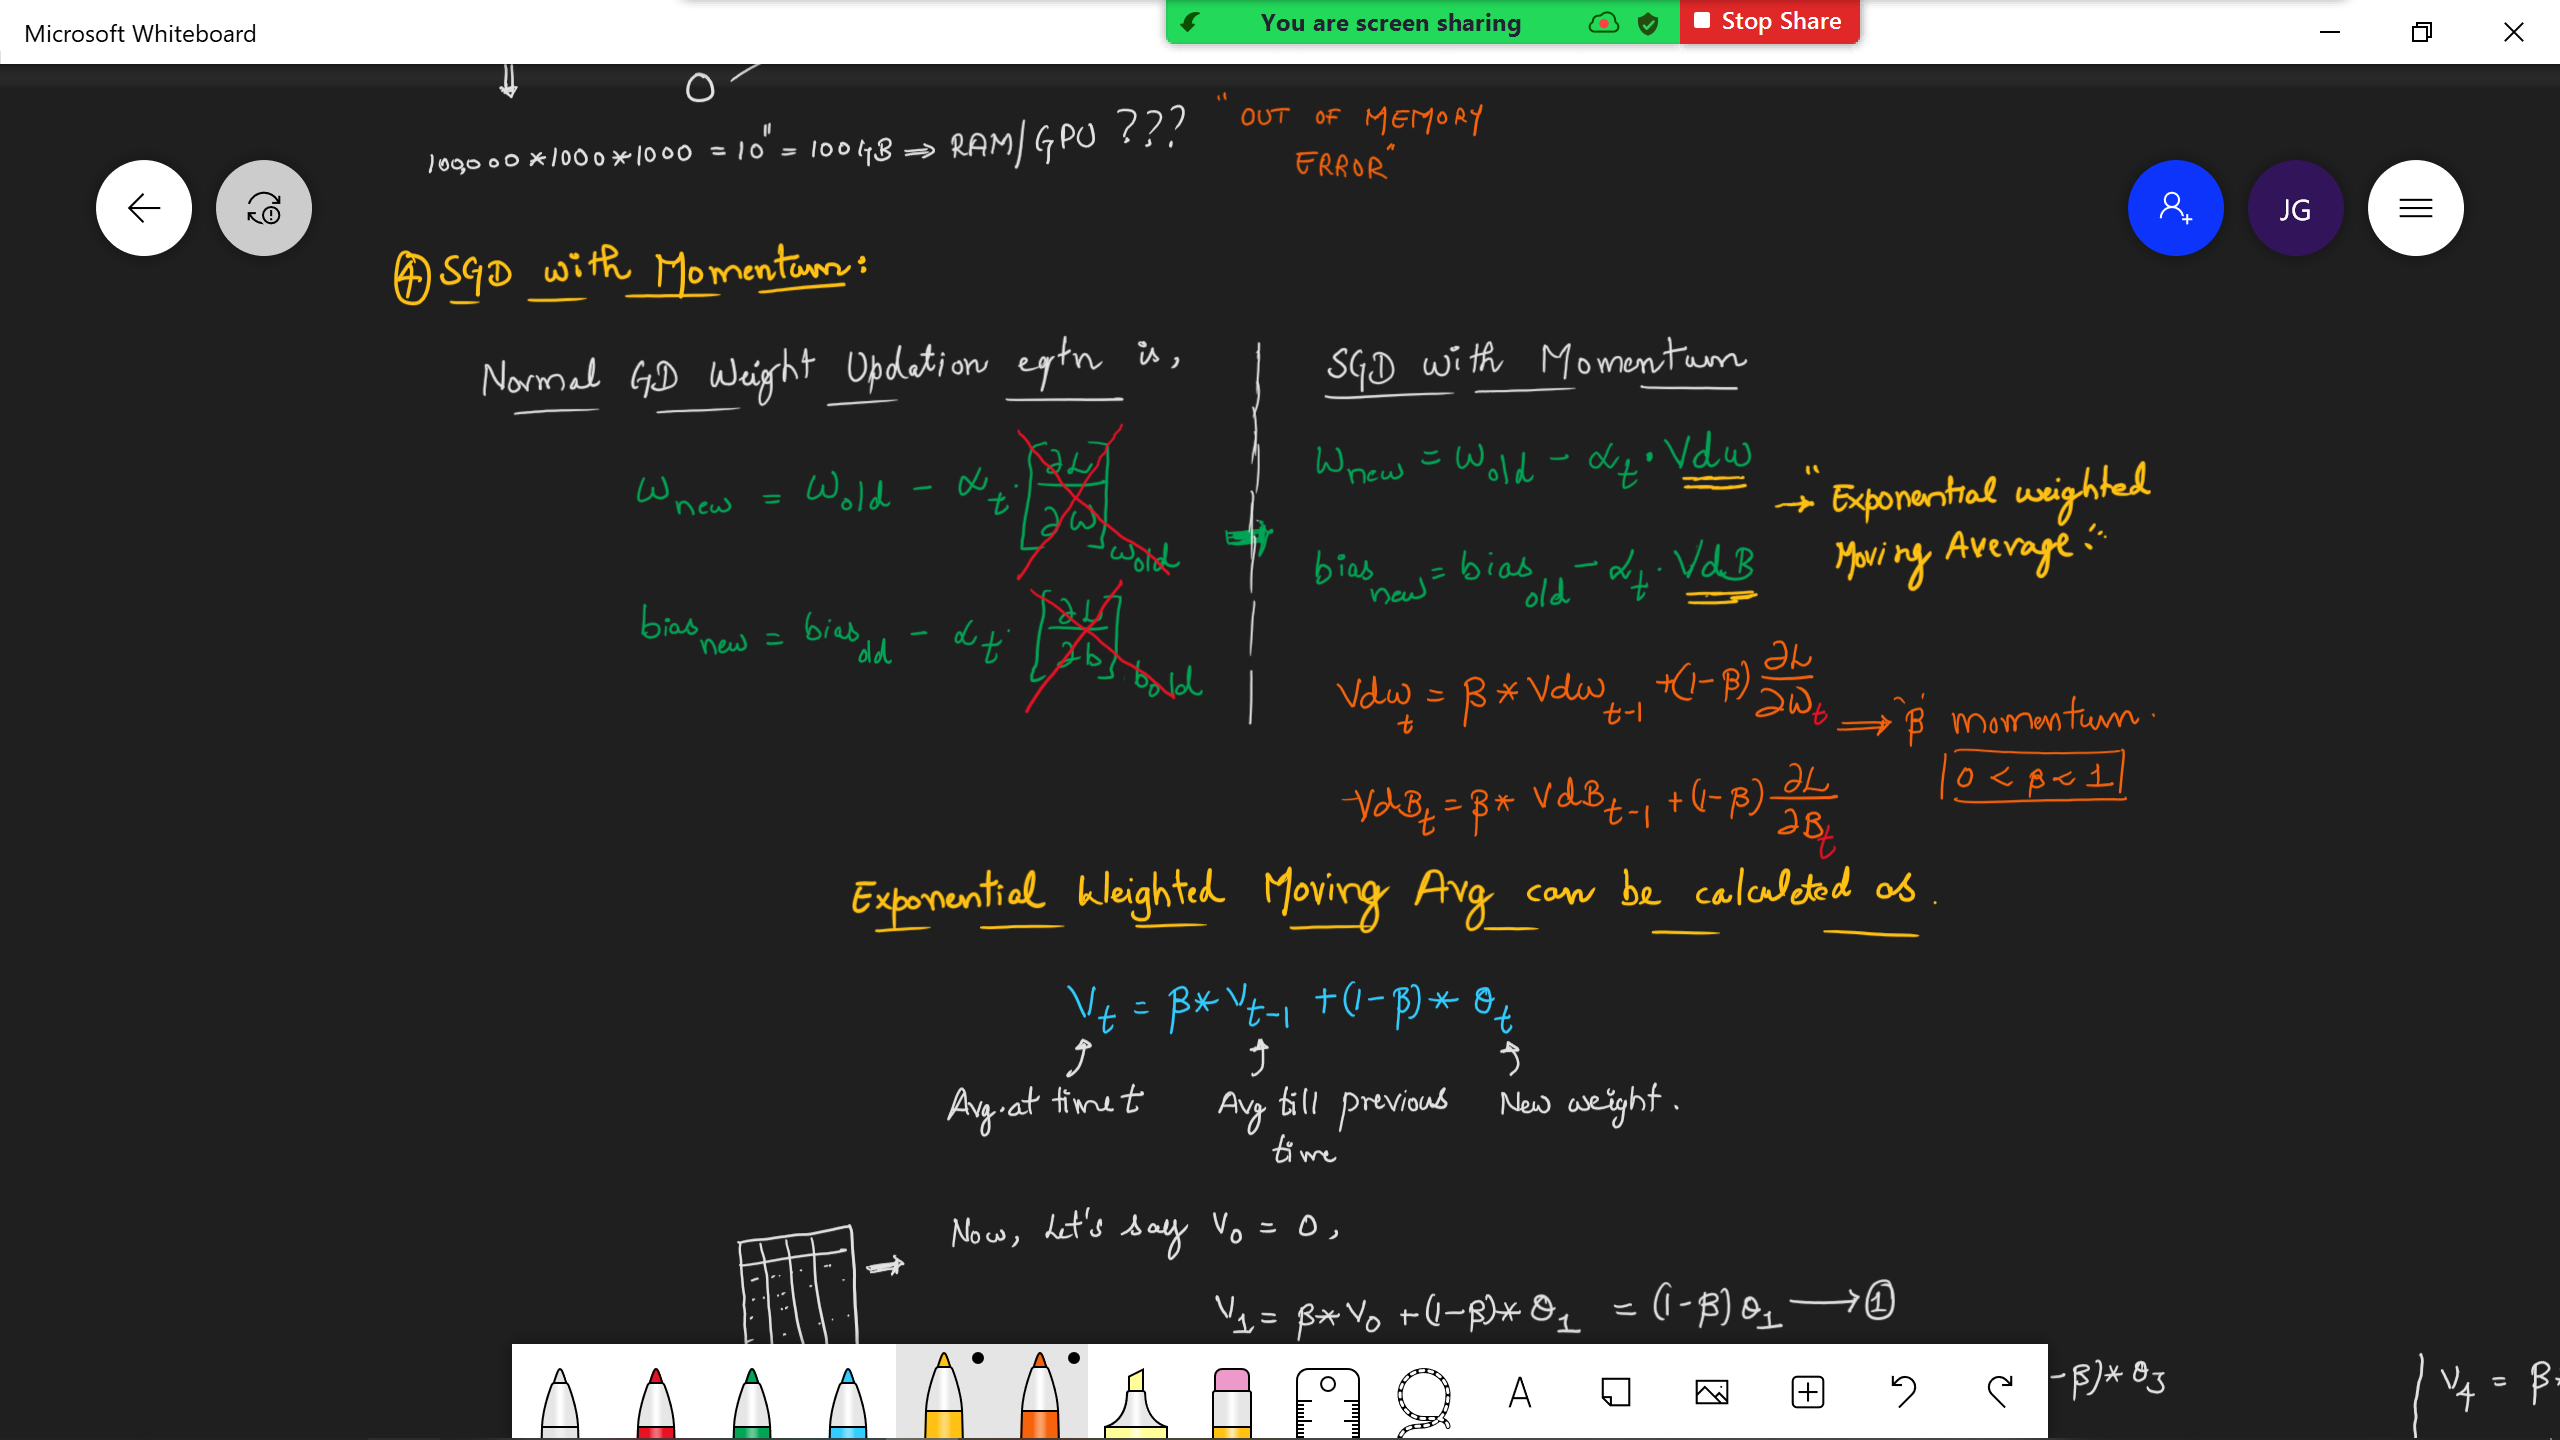 Microsoft Whiteboard
You are screen sharing
Stop Share
100,000 * 1000 * 1000 = 10^11 = 100GB ⇒ RAM/GPU ???
"OUT OF MEMORY
ERROR"
JG
④ SGD with Momentum:
Normal GD Weight Updation eqtn is,
W_new = W_old - α_t · [∂L/∂W]_W_old
bias_new = bias_old - α_t · [∂L/∂b]_b_old
SGD with Momentum
W_new = W_old - α_t · Vdw
→ "Exponential weighted
Moving Average"
bias_new = bias_old - α_t · VdB
Vdw_t = β * Vdw_t-1 + (1-β) ∂L/∂W_t ⇒ 'β' momentum.
0 < β < 1
VdB_t = β * VdB_t-1 + (1-β) ∂L/∂B_t
Exponential Weighted Moving Avg can be calculated as.
V_t = β * V_t-1 + (1-β) * θ_t
Avg. at time t
Avg till previous
time
New weight.
Now, Let's say V_0 = 0,
V_1 = β * V_0 + (1-β) * θ_1 = (1-β) θ_1 → ①
-β) * θ_3
V_4 = β